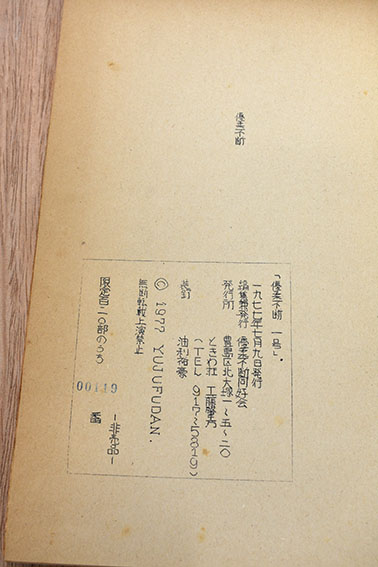 優柔不断
「優柔不断 一号」
一九七七年七月九日発行
編集兼発行 優柔不断同好会
発行所 豊島区北大塚一〜五〜二〇
ときわ荘 工藤
(TEL 917〜5819)
装釘 油利裕豪
© 1977 YUJUFUDAN.
無断転載上演禁止
限定百二〇部のうち
00119
番
ー非売品ー